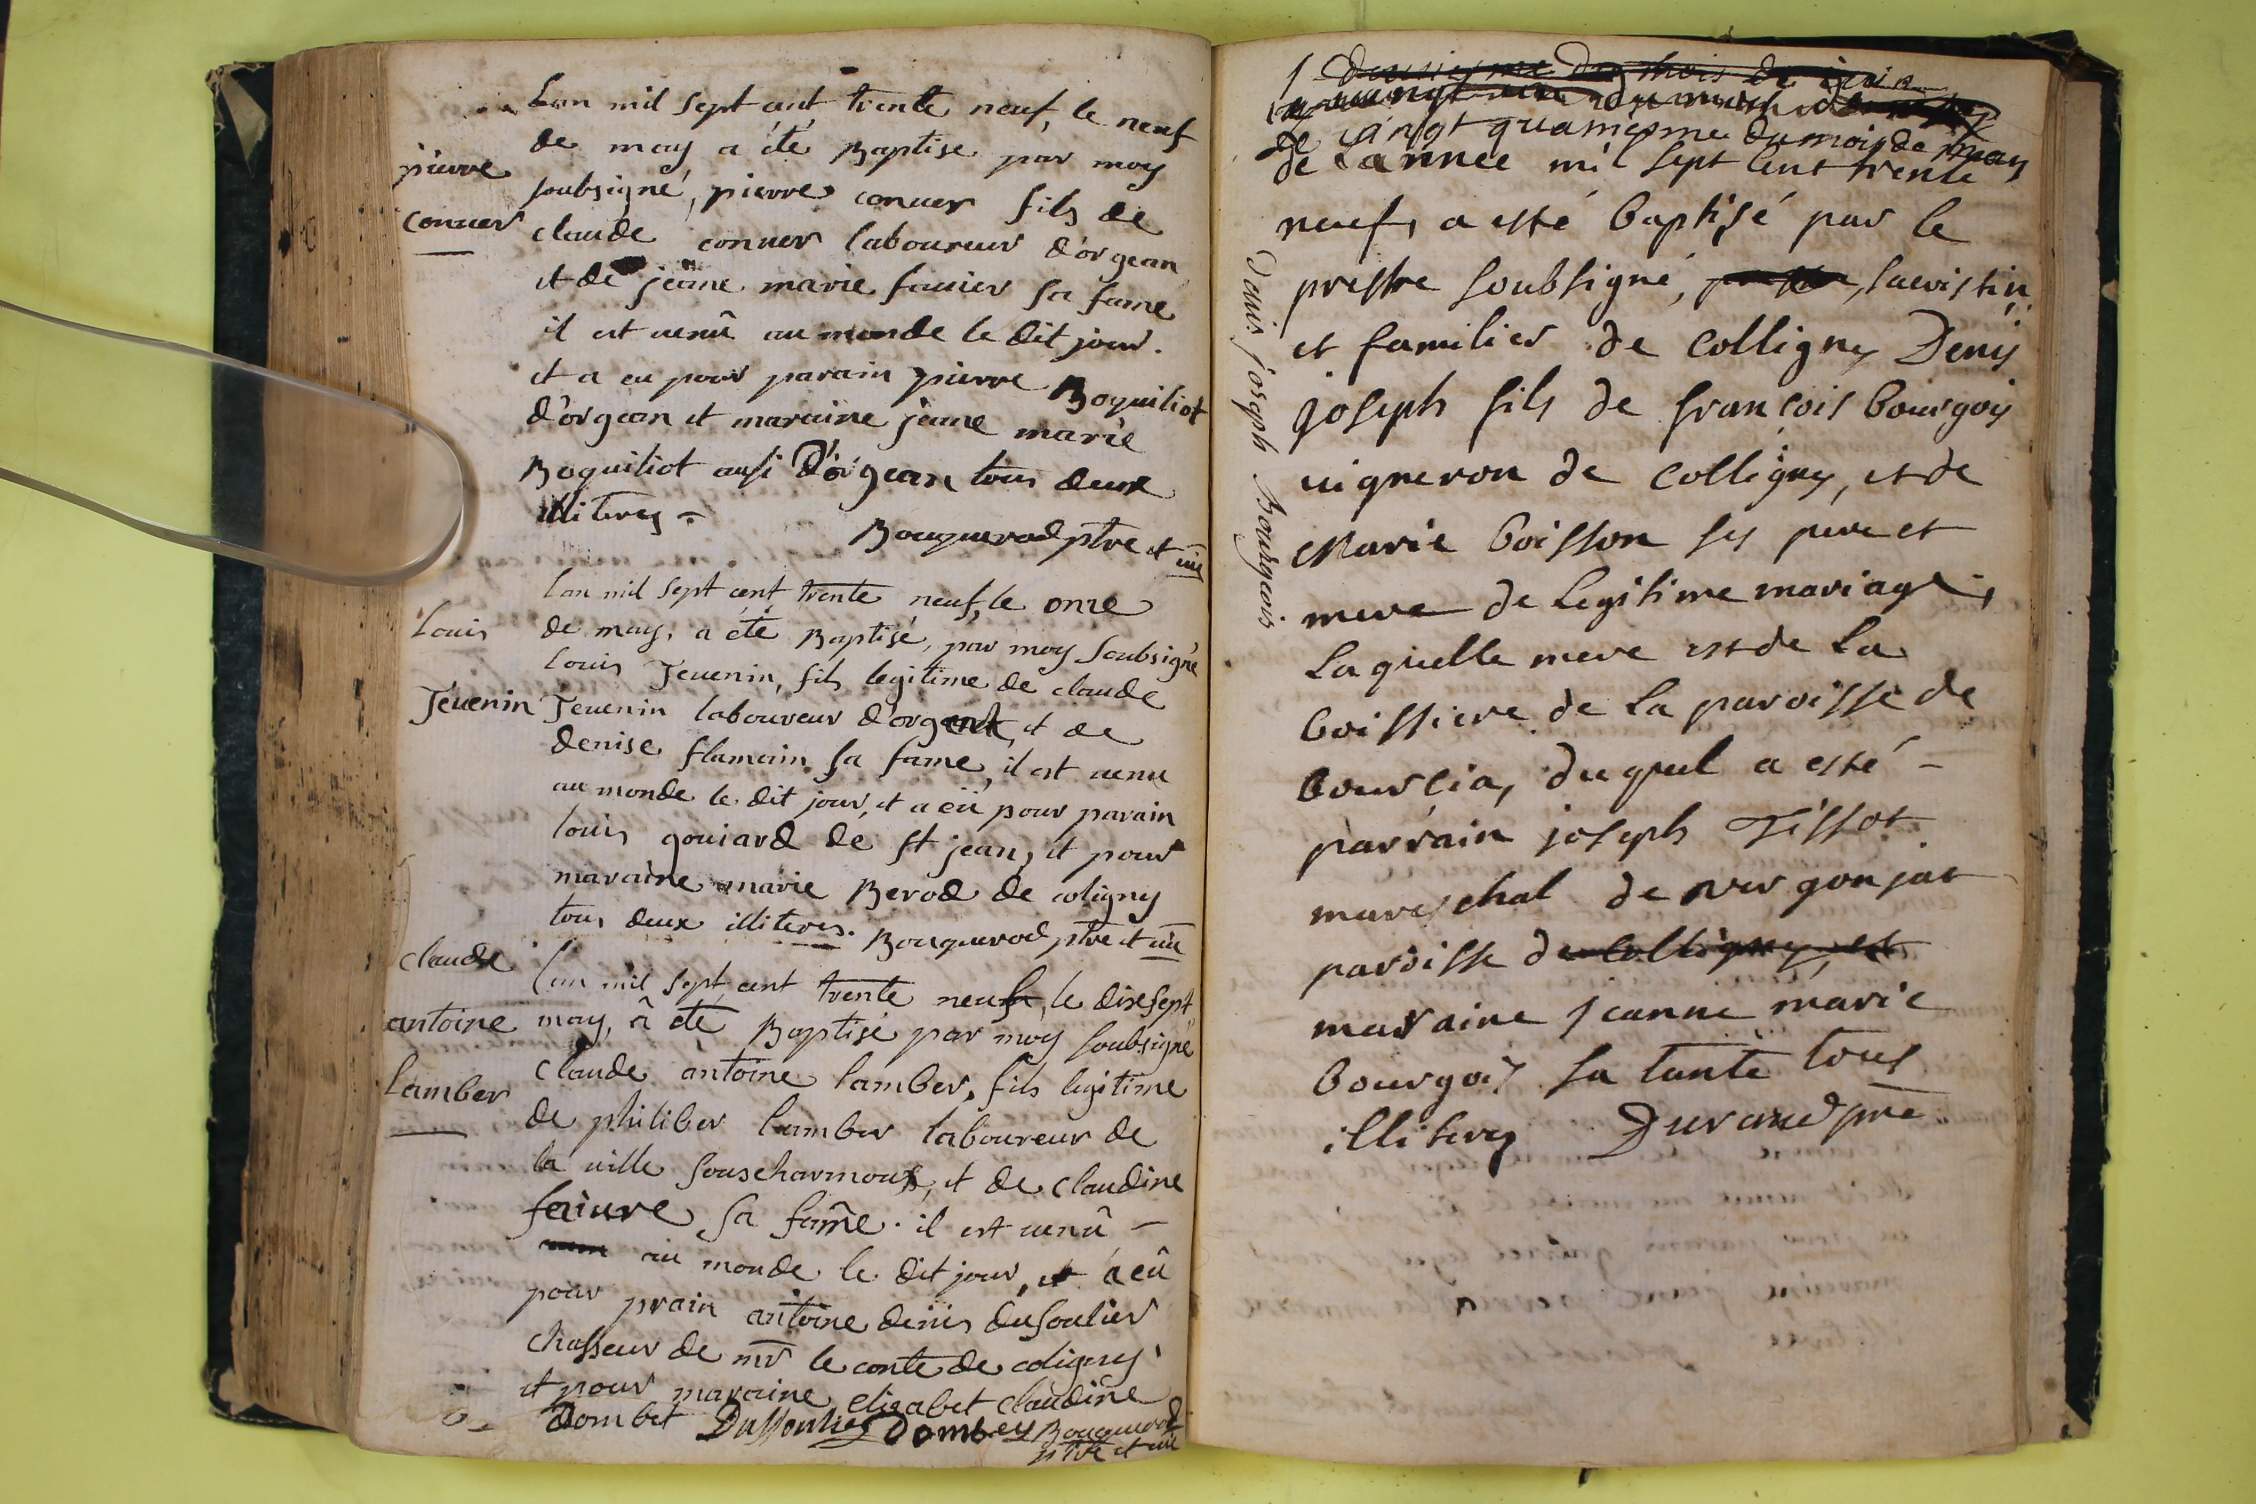 Lan mil sept cent trente neuf, le neuf
de may a été Baptise par moy
pierre
soubsigné, pierre conver fils de
conver
claude conver laboureur d'orgean
et de jeane marie favier sa fame
il est venû au monde le dit jour.
et a eu pour parain pierre Boquiliot
d'orgean et maraine jeane marie
Boquiliot ausi D'orgean tous deux
illiteres =
Bouquerod ptre et
lan mil sept cent trente neuf, le onze
Louis
de may, a été Baptisé, par moy Soubsigné
Louis Jevenin, fils legitime de claude
Jevenin
Jevenin laboureur d'orgent, et de
denise flamain sa fame, il est venu
au monde le dit jour, et a eü pour parain
louis goujard de st jean, et pour
maraine marie Berod de coligny
tous deux illiteres. Bouquerod ptre et
claude
lan mil sept cent trente neuf, le dixsept
antoine
may, â eté Baptisé par moy soubsigné
claude antoine lamber, fils legitime
Lamber
de philiber lamber laboureur de
la ville souscharmoux, et de claudine
faivre sa fame. il est venû -
au monde le dit jour, et a eû
pour prain antoine denis dusoulier
chasseur de mr le conte de coligny
et pour maraine elizabet claudine
dombet Dussoulier Dombey Bouquerod
ptre et
deuxiesme du mois de juin
vingt du
le vingt quatriesme du mois de may
de Lannee mil sept Cent trente
neuf, a esté baptisé par le
prestre soubsigné, sacristin
et familier de Colligny Denis
joseph fils de françois bourgois
vigneron de Colligny, et de
Marie boisson ses pere et
mere de legitime mariage,
Laquelle mere est de La
boissiere de la paroisse de
bourcia, duquel a esté -
parrain joseph Tissot
mareschal de vergonjat
paroisse de Colligny, et
maraine jeanne marie
bourgois sa tante tous
illiteres Durand pre
Denis joseph Bourgeois